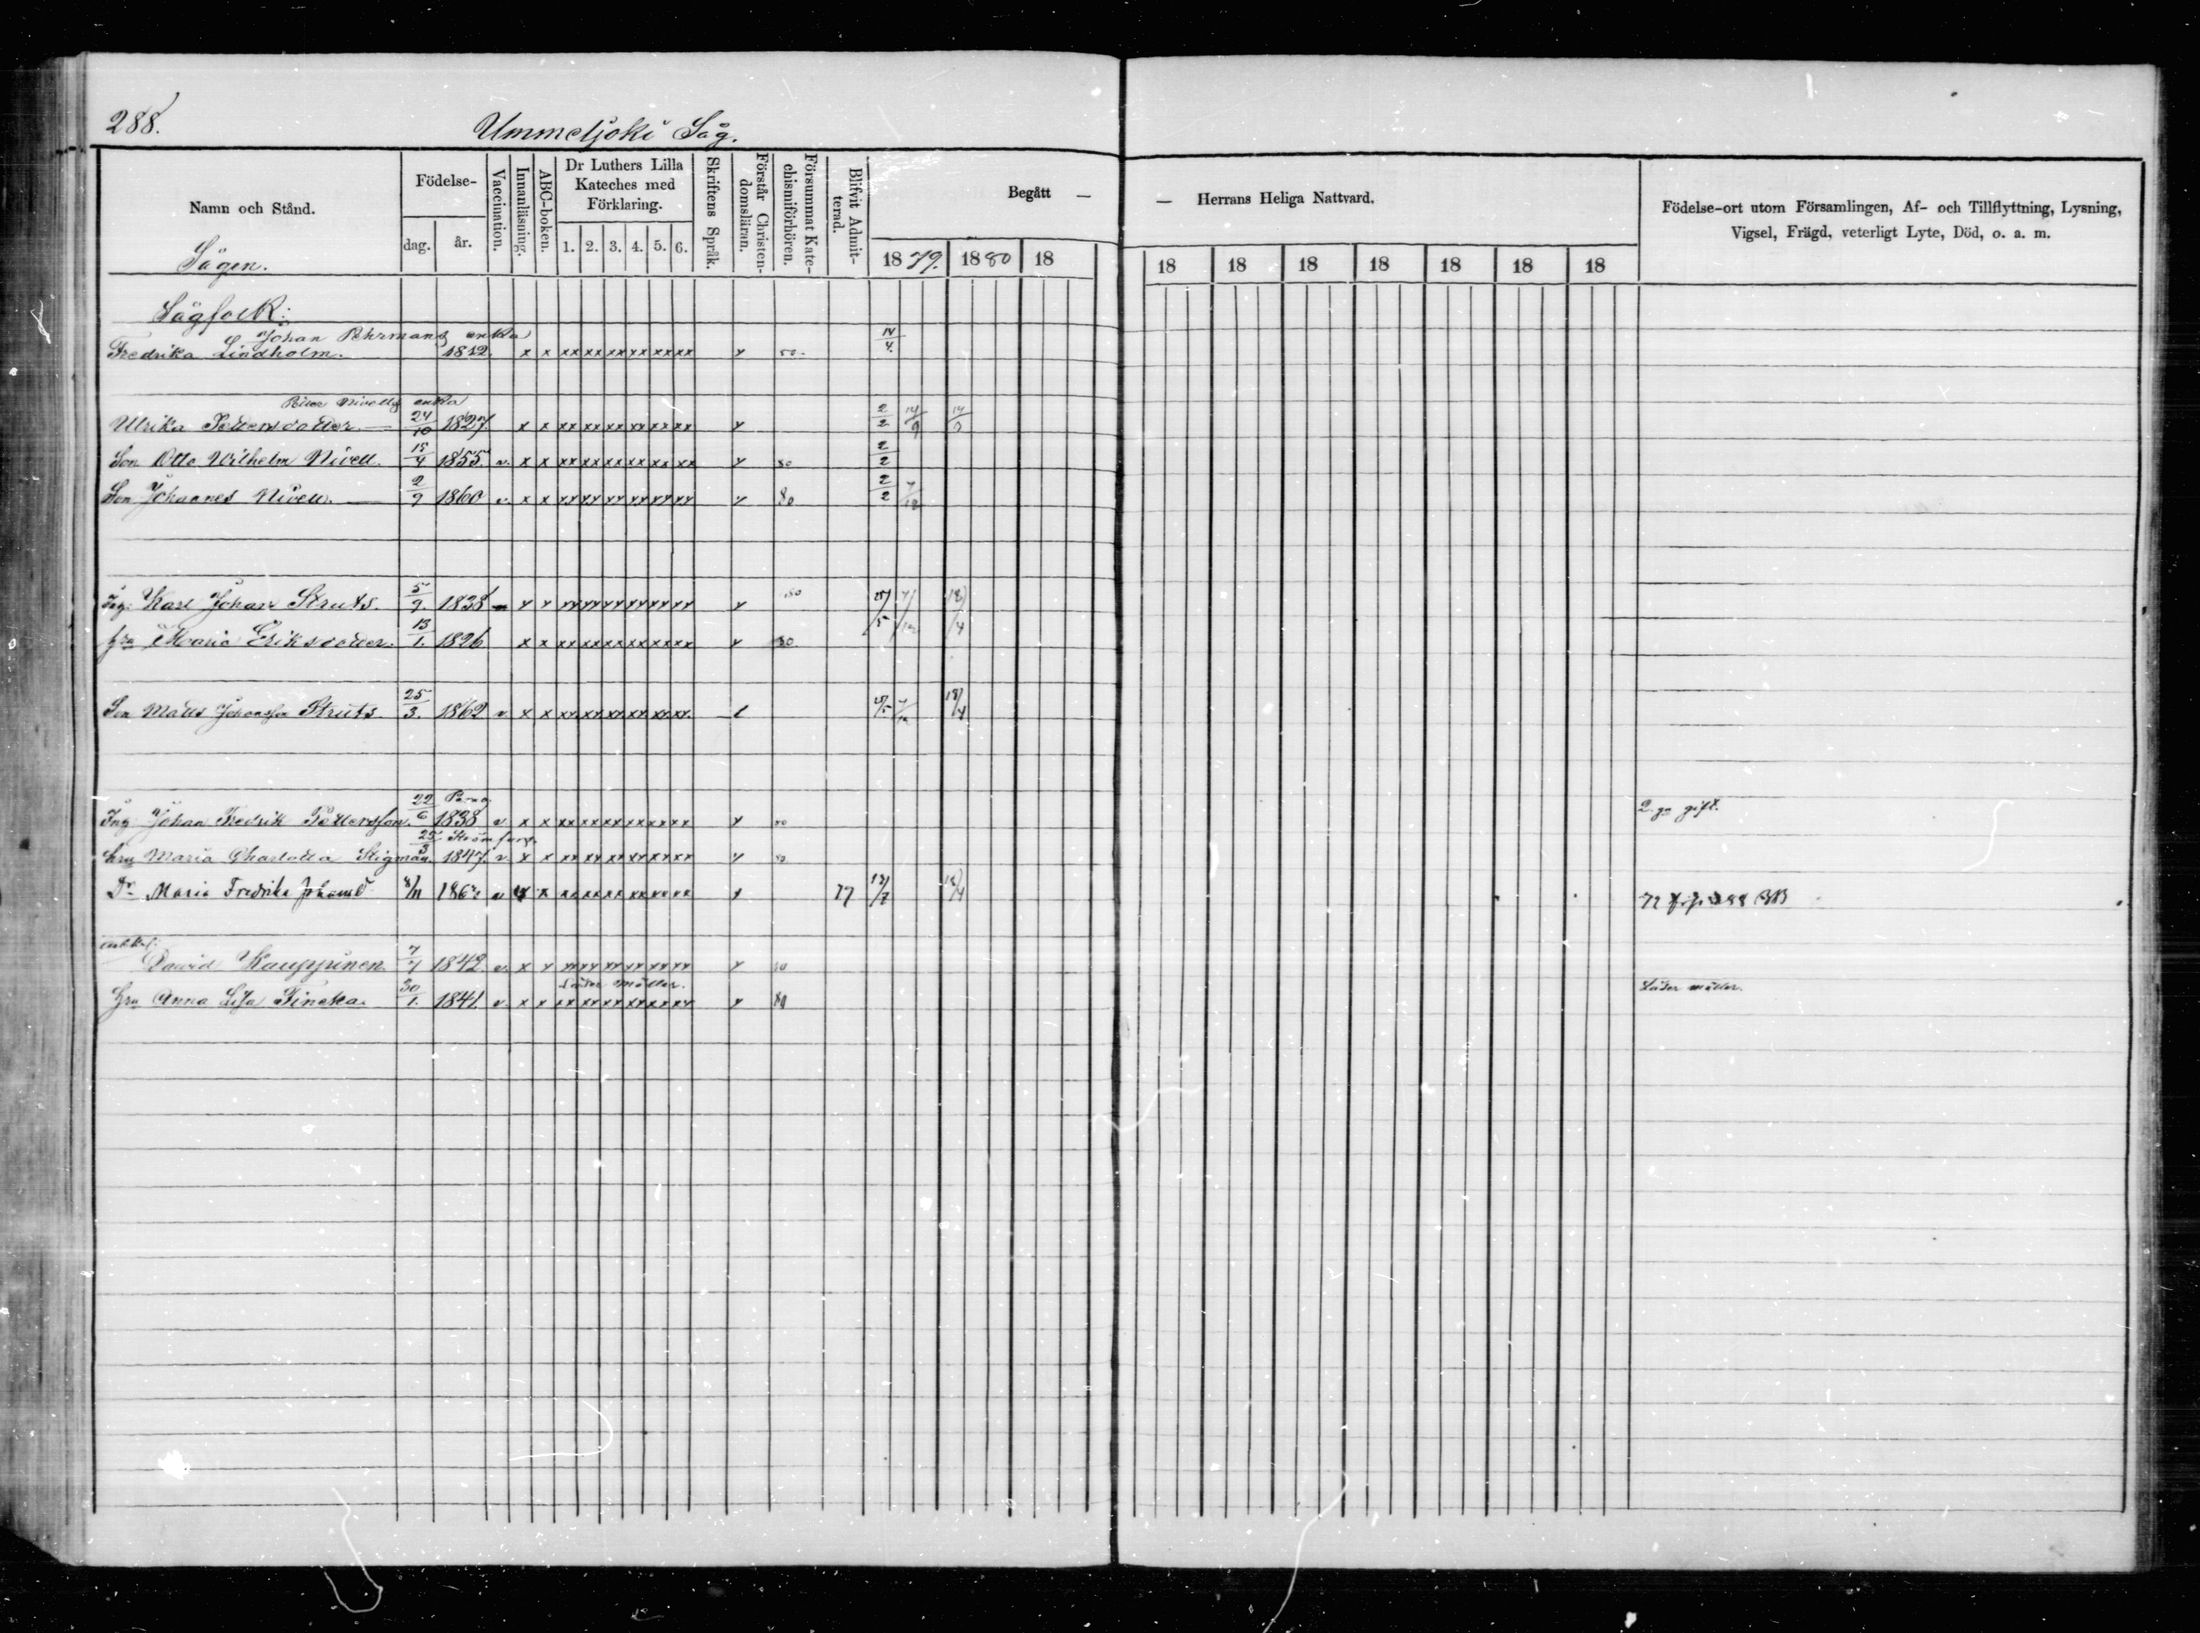 288.
Ummeljoki Såg.
Namn och Stånd.
Födelse-
dag.
år.
Vaccination.
Innanläsning.
ABC-boken.
Dr Luthers Lilla
Kateches med
Förklaring.
1. 2. 3. 4. 5. 6.
Skriftens Språk.
Förstår Christen-
domsläran.
Försummat Kate-
chismiförhören.
Blifvit Admit-
terad.
Begått —
— Herrans Heliga Nattvard.
1879. 1880 18
18 18 18 18 18 18 18
Födelse-ort utom Församlingen, Af- och Tillflyttning, Lysning,
Vigsel, Frägd, veterligt Lyte, Död, o. a. m.
Sågen.
Sågfolk:
Johan enka
Fredrika Lindholm. 1812. x x xx xx xx xx xx xx x 80. 4.
Nivells enka
Ulrika Pettersdotter. — 24/10 1827 x x xx xx xx xx xx xx x 2/2 14/9
Son Otto Wilhelm Nivell. 15/4 1855. v. x x xx xx xx xx xx xx x 80 2/2
Son Johannes Nivell. — 2/9 1860 v. x x xx xx xx xx xx xx x 80 2/2 7/12
Ing. Karl Johan Struts. 5/9. 1838 x x xx xx xx xx xx xx x 80 25/5 7/12 18/4
hru Maria Eriksdotter. 13/1. 1826 x x xx xx xx xx xx xx x 80.
Son Matts Johansson Struts. 25/3. 1862 v x x xx xx xx xx xx xx 7/12 18/4
22/6 Perno
Ing. Johan Fredrik Pettersson. 1838 v x x xx xx xx xx xx xx x 80 2 ga gift.
25/3 Strömfors.
hru Maria Charlotta Stigman. 1847. v. x x xx xx xx xx xx xx x 80
Dr Maria Fredrika Johansd 8/11 186 v x x xx xx xx xx xx xx x 77 18/4
David Kauppinen. 7/7 1842. v. x x xx xx xx xx xx xx x 80
Läser måttor.
hru Anna Lisa Fincka. 30/1. 1841. v. x x xx xx xx xx xx xx x 80